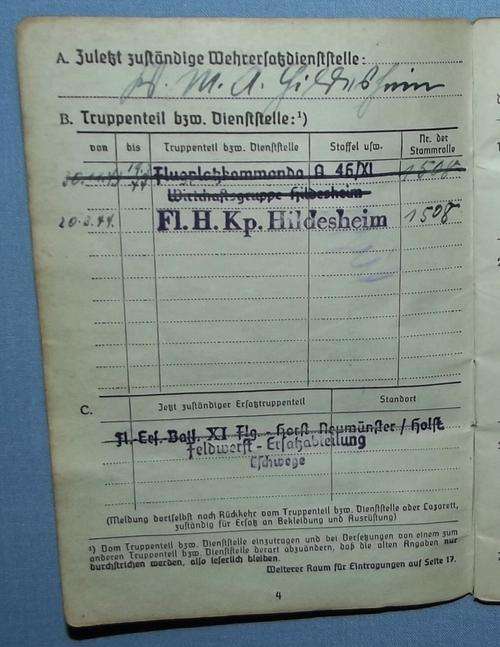 A. Zuletzt zuständige Wehrersatzdienststelle:
W. M. A. Hildesheim
B. Truppenteil bzw. Dienststelle:¹)
von bis Truppenteil bzw. Dienststelle Staffel usw. Nr. der Stammrolle
Flugplatzkommando A 46/XI 1508
Wirtschaftsgruppe Hildesheim
20.3.44. Fl. H. Kp. Hildesheim 1508
C. Jetzt zuständiger Ersatztruppenteil Standort
Fl.-Ers.-Batl. XI Flg.-Horst Neumünster / Holst
Feldwerft-Ersatzabteilung
Eschwege
(Meldung dortselbst nach Rückkehr vom Truppenteil bzw. Dienststelle oder Lazarett,
zuständig für Ersatz an Bekleidung und Ausrüstung)
¹) Vom Truppenteil bzw. Dienststelle einzutragen und bei Versetzungen von einem zum
anderen Truppenteil bzw. Dienststelle derart abzuändern, daß die alten Angaben nur
durchstrichen werden, also leserlich bleiben.
Weiterer Raum für Eintragungen auf Seite 17.
4